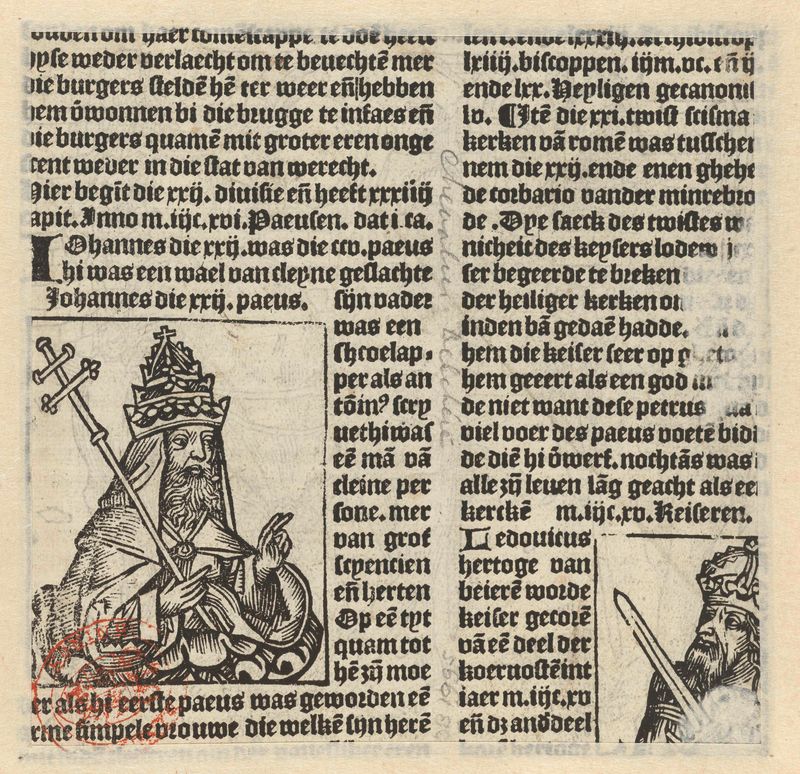 ouden om haer comēscappe te doē heeft
yse weder verlaecht om te bevechtē mer
die burgers steldē hē ter weer eñ hebben
hem ōwonnen bi die brugge te infaes eñ
die burgers quamē mit groter eren onge
cent weder in die stat van werecht.
Hier begīt die xxij. divisie eñ heeft xxxiiij
apit. Anno m.iijc.xvi. Paeusen. dat i. ca.
IOhannes die xxij. was die ccv. paeus
hi was een wael van cleyne geslachte
Johannes die xxij. paeus. sijn vader
was een
schoelap⸗
per als an
tōin⁹ scry
uet hi was
eē mā vā
cleine per
sone. mer
van grot
scyencien
eñ herten
Op eē tyt
quam tot
hē zij moe
er als hi eerste paeus was geworden eē
rme simpele vrouwe die welkē sijn herē
lxiiij. biscoppen. iijm. vc. eñ ij
ende lxx. Heyligen gecanonil
lv. ¶ Itē die xxi. twist scisma
kerken vā romē was tusschen
nem die xxij. ende enen ghehe
de corbario vander minrebro
de. Dye saeck des twistes w
nicheit des keysers lodew
ser begeerde te breken
der heiliger kerken on
inden bā gedaē hadde.
hem die keiser seer op g
hem geeert als een god
de niet want dese petrus
viel voer des paeus voetē bidi
de diē hi ōwerf. nochtās was
alle zij leuen lāg geacht als ee
kerckē m.iijc.xv. Keiseren.
LEdovicus
hertoge van
beierē worde
keiser gecorē
vā eē deel der
koervostē int
iaer m.iijc.xv
eñ dz and̄deel